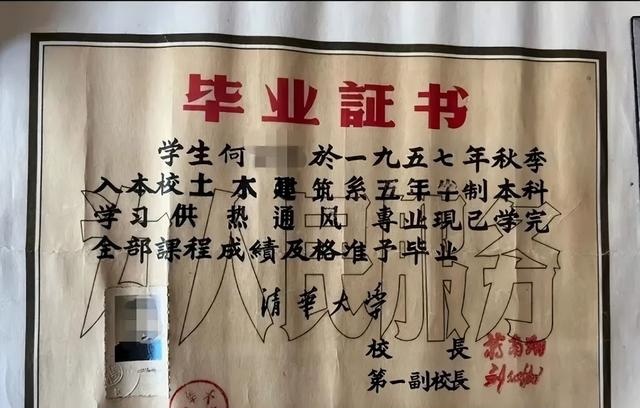 毕业証书
学生何 於一九五七年秋季
入本校土木建筑系五年半制本科
学习供热通风專业現已学完
全部課程成績及格准予毕业
为人民服务
清華大学
校 長 蒋南翔
第一副校長